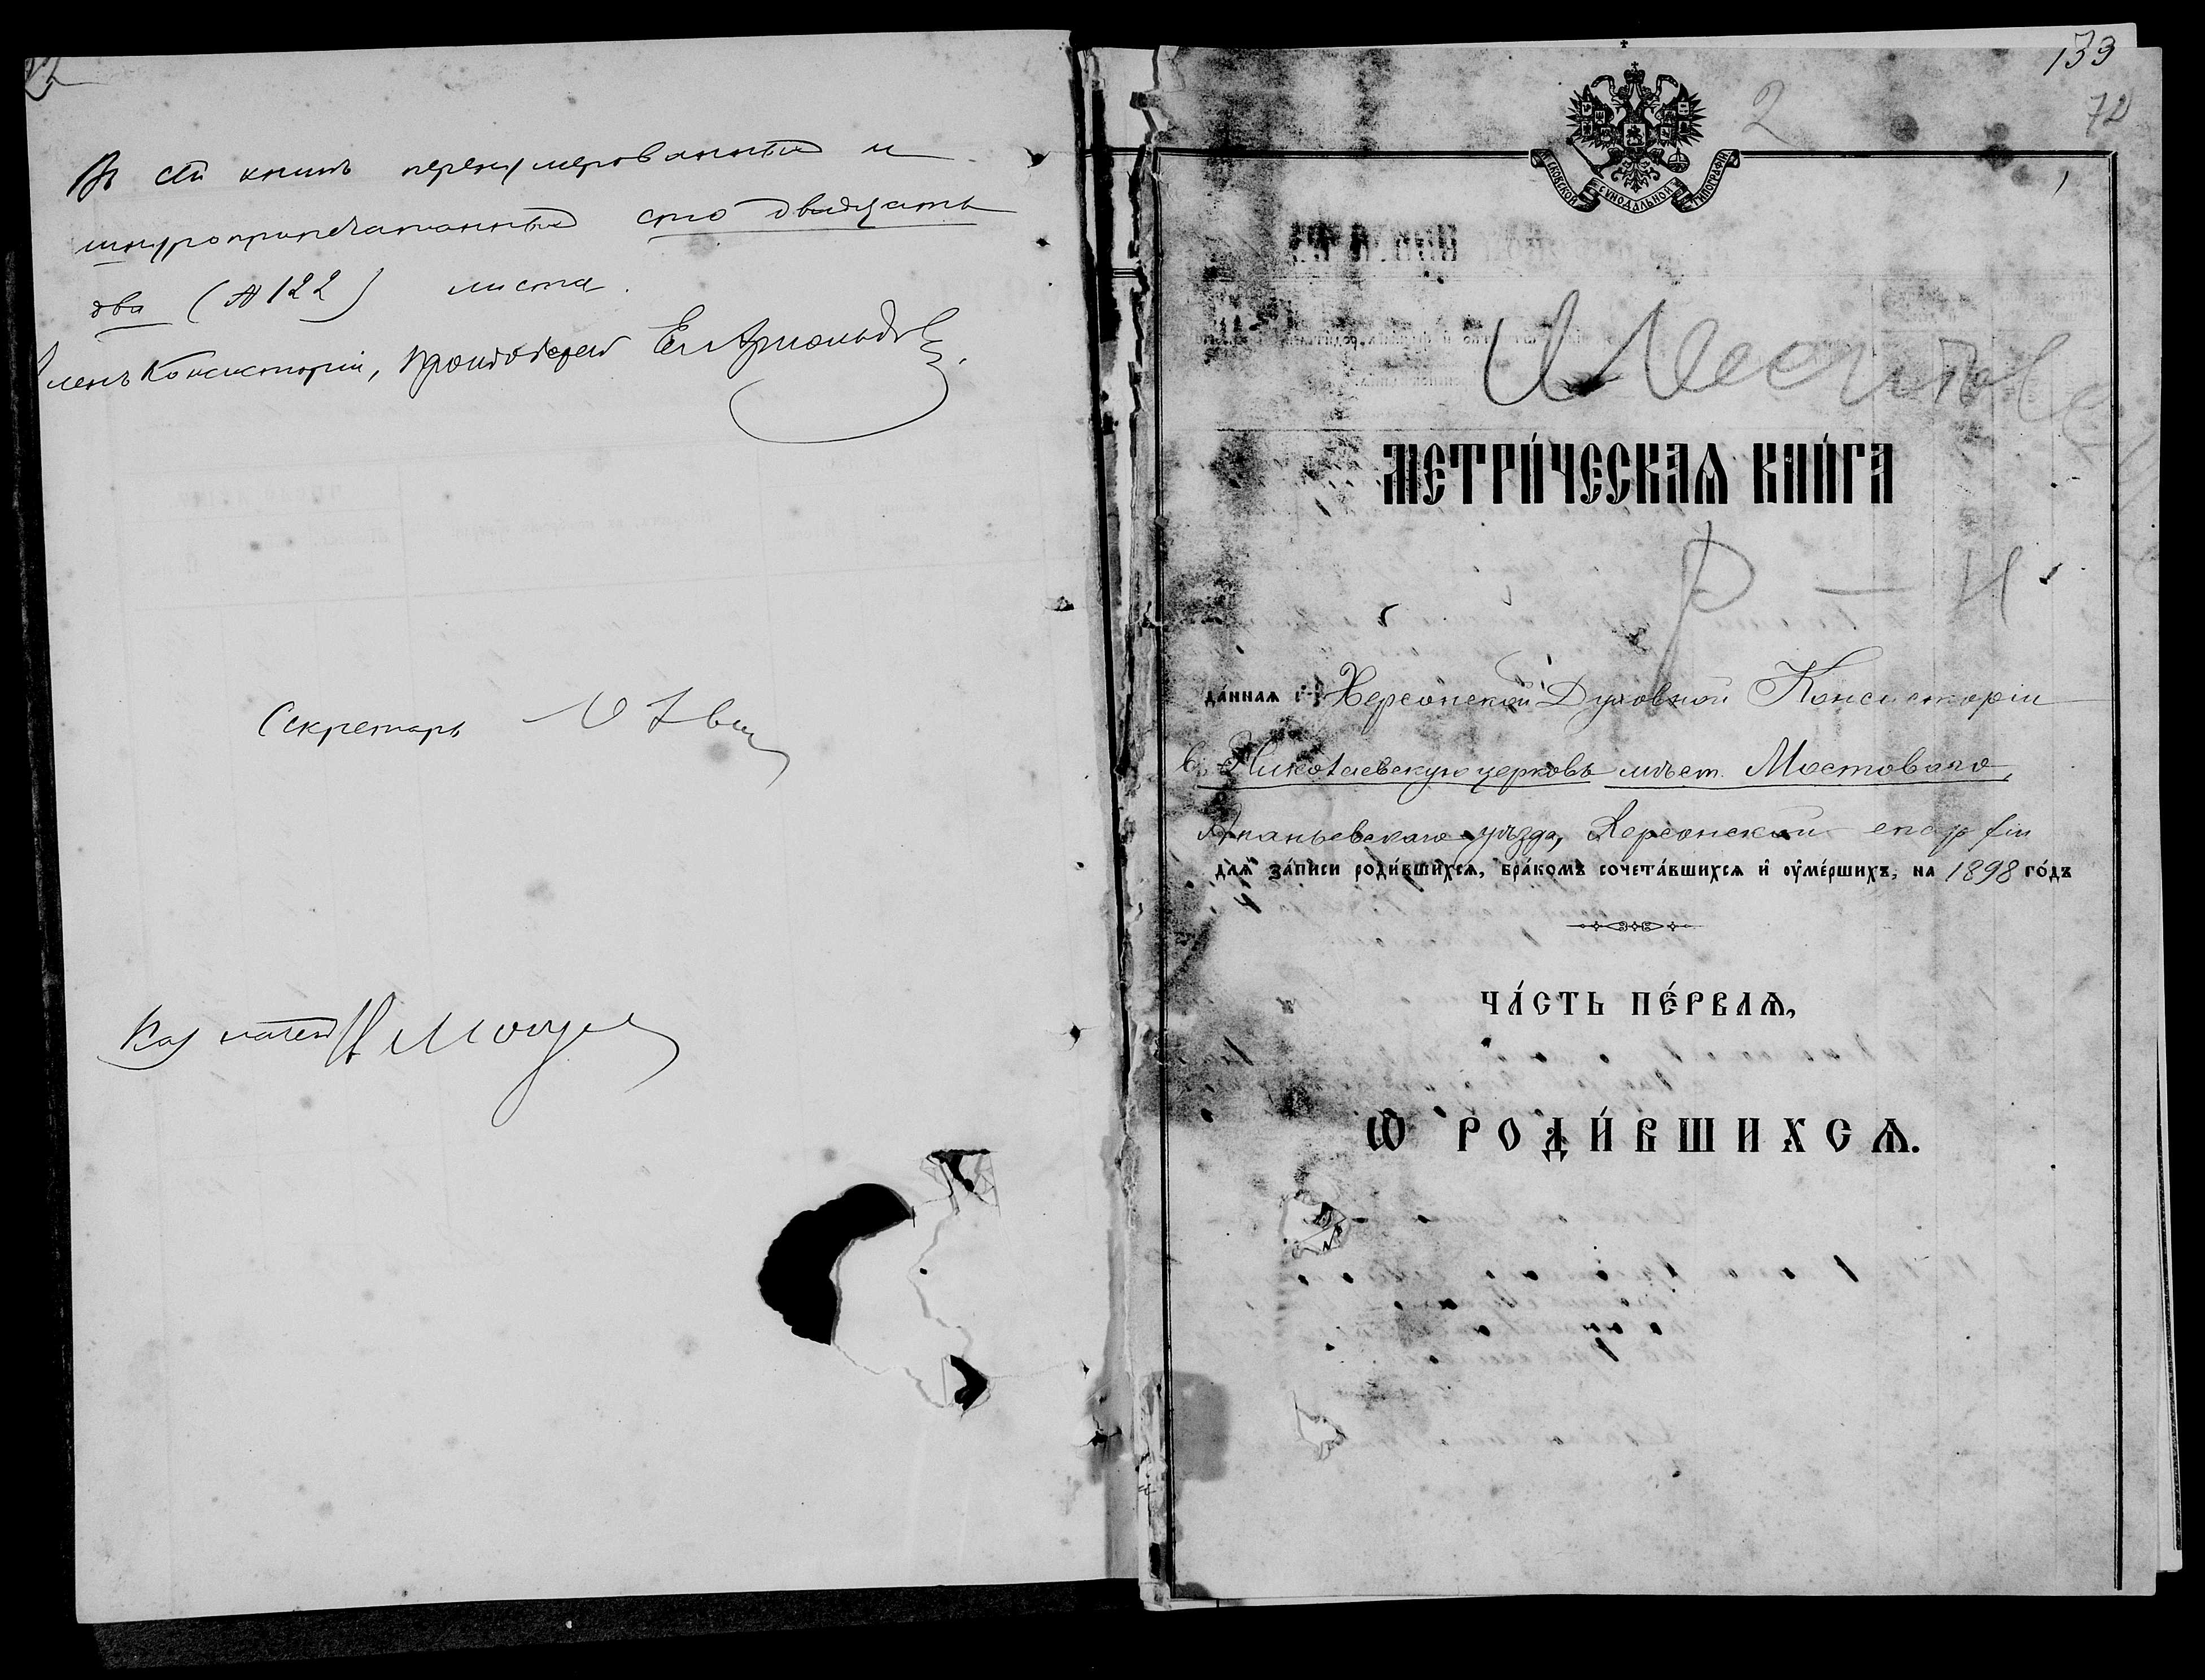 Въ сей книгѣ перенумерованныхъ и
шнуроприпечатанныхъ сто двадцать
два (№ 122) листа.
Членъ Консисторіи, Протоіерей
Секретарь
Казначей
139
2
72
МОСКОВСКОЙ СѴНОДАЛЬНОЙ ТИПОГРАФІИ
1
МЕТРИ́ЧЕСКАѦ КНИ́ГА
Р – Н
да́ннаѧ и҆з̾ Херсонской Духовной Консисторіи
въ Николаевскую церковь мѣст. Мостоваго,
Ананьевскаго уѣзда, Херсонской епархіи
длѧ̀ за́писи роди́вшихсѧ, бра́комъ сочета́вшихсѧ и҆ оу҆ме́ршихъ, на 1898 го́дъ
ЧА́СТЬ ПЕ́РВАѦ,
Ѡ҆ РОДИ́ВШИХСѦ.